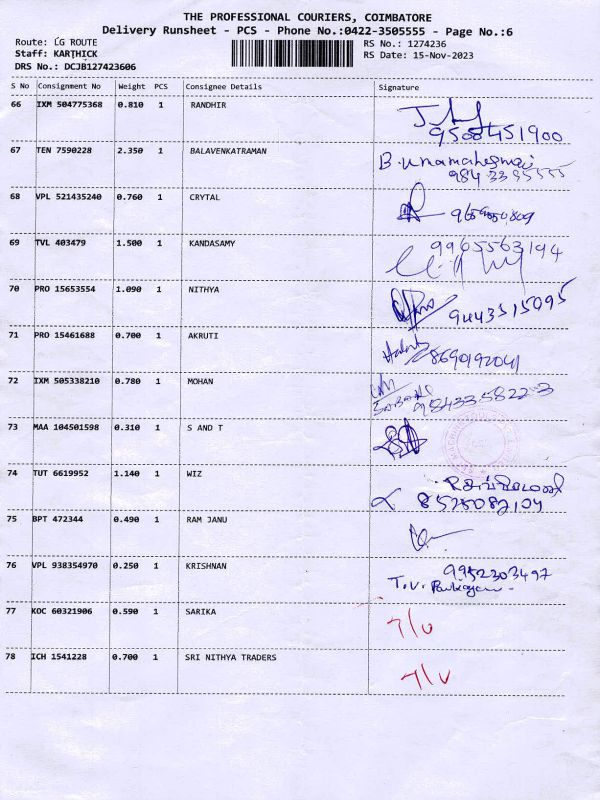 THE PROFESSIONAL COURIERS, COIMBATORE
Delivery Runsheet - PCS - Phone No.:0422-3505555 - Page No.:6
Route: LG ROUTE
RS No.: 1274236
Staff: KARTHICK
RS Date: 15-Nov-2023
DRS No.: DCJB127423606
S No Consignment No Weight PCS Consignee Details Signature
66 IXM 504775368 0.810 1 RANDHIR
9500451900
67 TEN 7590228 2.350 1 BALAVENKATRAMAN B. Umamaheswari
984 3395555
68 VPL 521435240 0.760 1 CRYTAL
69 TVL 403479 1.500 1 KANDASAMY 9965563194
70 PRO 15653554 1.090 1 NITHYA 9443515095
71 PRO 15461688 0.700 1 AKRUTI 8690192041
72 IXM 505338210 0.780 1 MOHAN
9843358223
73 MAA 104501598 0.310 1 S AND T
74 TUT 6619952 1.140 1 WIZ
8525082104
75 BPT 472344 0.490 1 RAM JANU
76 VPL 938354970 0.250 1 KRISHNAN 9952303497
T.V.
77 KOC 60321906 0.590 1 SARIKA
78 ICH 1541228 0.700 1 SRI NITHYA TRADERS